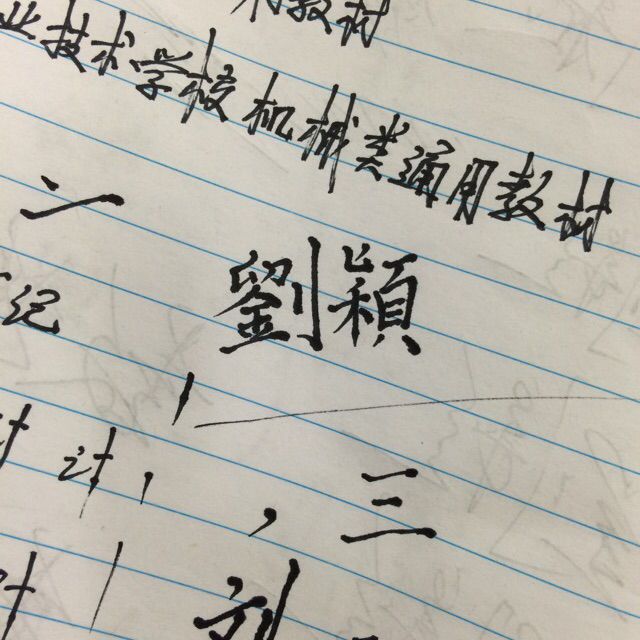 教材
业技术学校机械类通用教材
一
劉穎
记
计,,三
计1